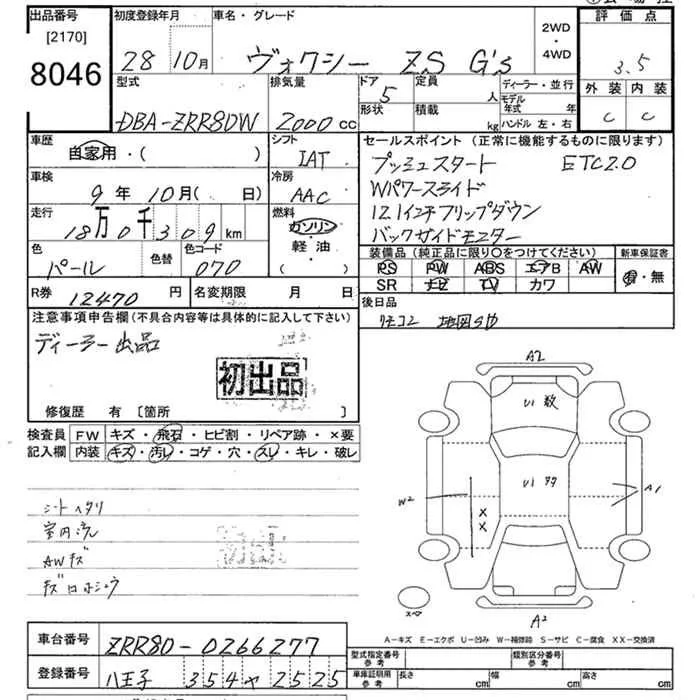 出品番号 初度登録年月 車名・グレード 2WD・4WD 評価点
[2170]
8046 28 10月 ヴォクシー ZS G's 3.5
型式 排気量 ドア 5 定員 人 ディーラー・並行 外装 内装
DBA-ZRR80W 2000 cc 形状 積載 kg モデル年式 年 ハンドル 左・右 C C
車歴 自家用・( ) シフト IAT セールスポイント (正常に機能するものに限ります)
プッシュスタート ETC2.0
車検 9年 10月( 日) 冷房 AAC Wパワースライド
走行 18万0千309 km 燃料 ガソリン・軽油・( ) 12.1インチフリップダウン
バックガイドモニター
色 パール 色替 色コード 070 装備品 (純正品に限り〇をつけてください) 新車保証書
PS PW ABS エアB AW 有・無
SR ナビ TV カワ
R券 12470 円 名変期限 月 日 後日品
リモコン2 地図SD
注意事項申告欄(不具合内容等は具体的に記入して下さい)
ディーラー出品
初出品
修復歴 有 [箇所 ]
検査員 FW キズ・飛石・ヒビ割・リペア跡・×要
記入欄 内装 キズ・汚レ・コゲ・穴・スレ・キレ・破レ
シートヘタリ
AWキズ
A2
U1 数
U1
W2 A1
X
X
スペア A2
A-キズ E-エクボ U-凹み W-補修跡 S-サビ C-腐食 XX-交換済
車台番号 ZRR80-0266277
型式指定番号 参考 類別区分番号 参考
登録番号 八王子 354 ヤ 2525
車庫証明用 参考 長さ cm 幅 cm 高さ cm